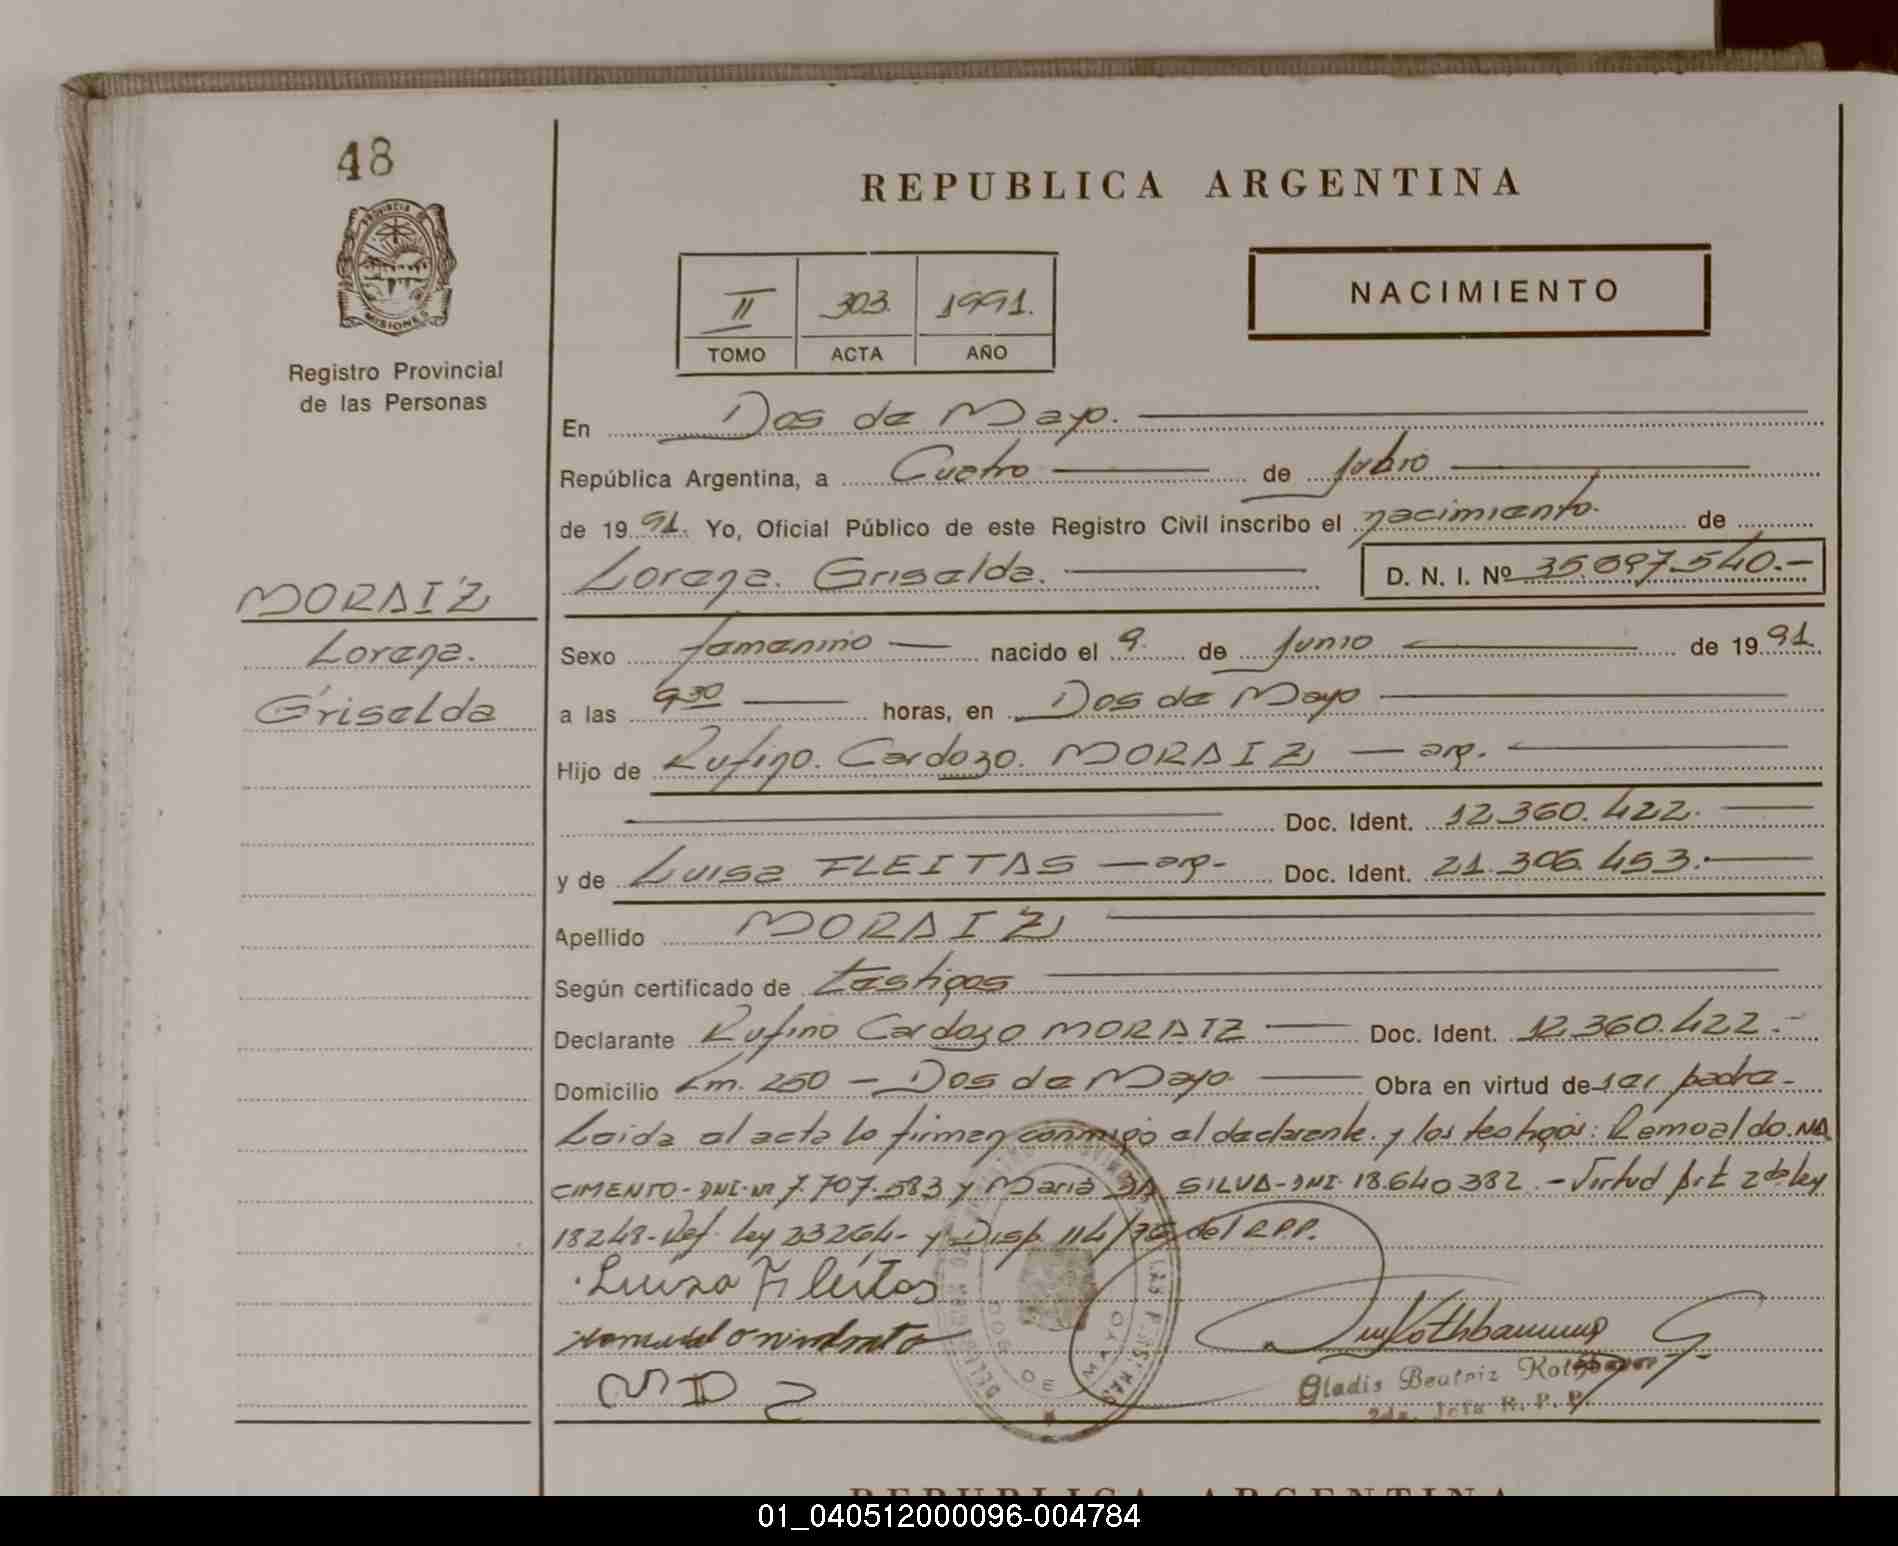 48
REPUBLICA ARGENTINA
PROVINCIA DE MISIONES
Registro Provincial
de las Personas
II 303. 1991.
TOMO ACTA AÑO
NACIMIENTO
En Dos de Mayo.
República Argentina, a Cuatro de Julio
de 1991. Yo, Oficial Público de este Registro Civil inscribo el nacimiento. de
Lorena. Griselda. D. N. I. Nº 35.697.540.-
MORAIZ
Lorena.
Griselda
Sexo femenino nacido el 9. de Junio de 1991.
a las 9 30 horas, en Dos de Mayo
Hijo de Rufino. Cardozo. MORAIZ — arg.
Doc. Ident. 12.360.422.
y de Luisa FLEITAS — arg- Doc. Ident. 21.306.453.
Apellido MORAIZ
Según certificado de testigos
Declarante Rufino Cardozo MORAIZ Doc. Ident. 12.360.422.-
Domicilio Km. 250 - Dos de Mayo Obra en virtud de ser padre-
Leida el acta lo firman conmigo el declarante. y los testigos: Romualdo. NA
CIMENTO- DNI- Nº 7.707.583 y Maria DA SILVA- DNI- 18.640382.- Virtud Art 2 de ley
18248- Ref. ley 23264- y Disp. 114/76 del R.P.P.
Luisa Fleitas
M D S
Gladis Beatriz
2da. Jefa R. P. P.
DOS DE MAYO
REPUBLICA ARGENTINA
01_040512000096-004784